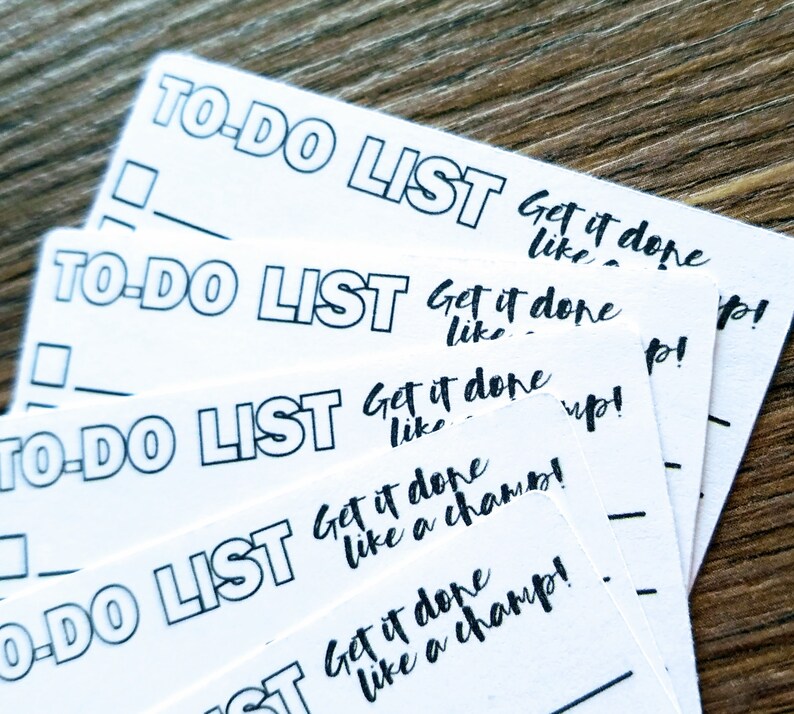 TO-DO LIST
Get it done
like a champ!
TO-DO LIST
Get it done
like p!
TO-DO LIST
Get it done
like mp!
TO-DO LIST
Get it done
like a champ!
O-DO LIST
Get it done
like a champ!